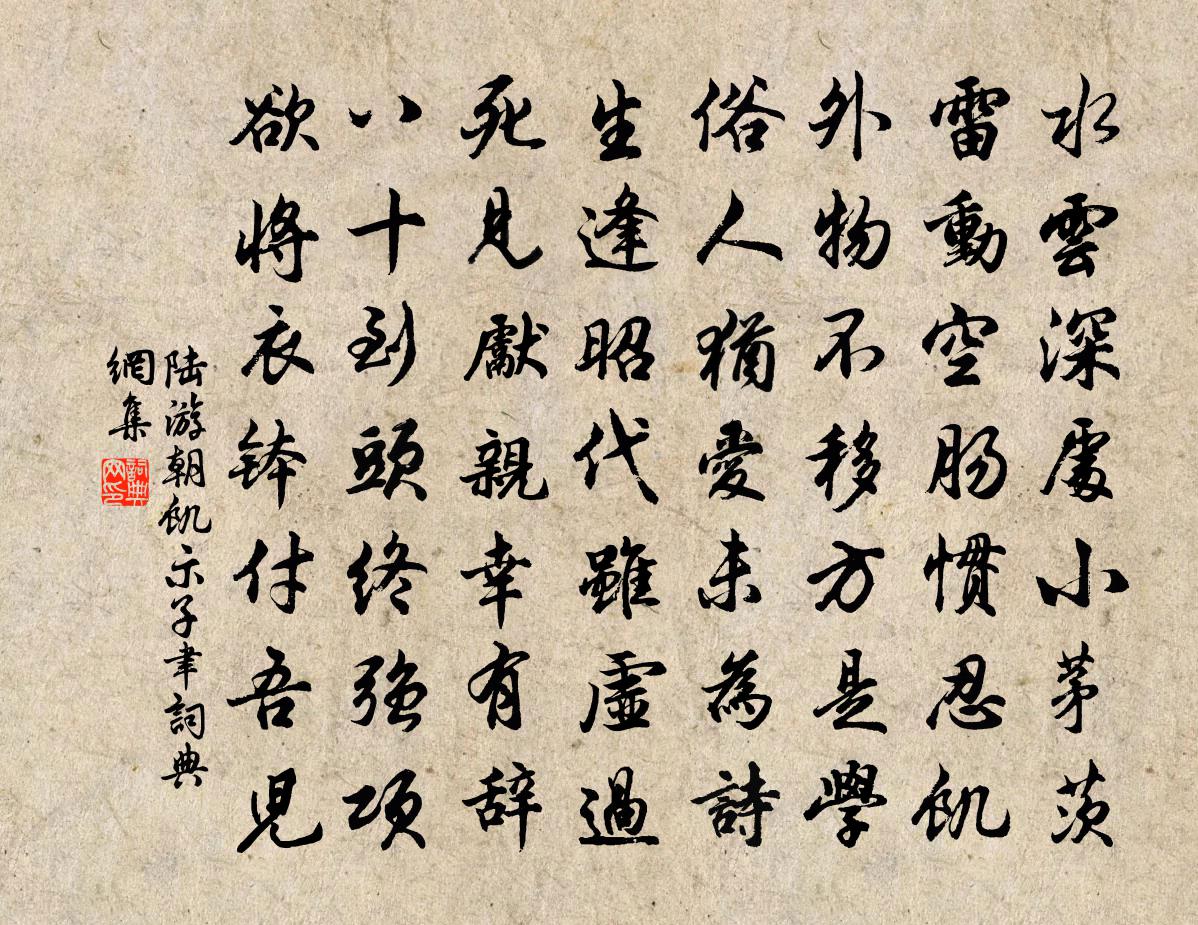 水雲深處小茅茨
雷動空腸慣忍飢
外物不移方是學
俗人猶愛未為詩
生逢昭代雖虛過
死見獻親幸有辭
八十到頭終強項
欲將衣缽付吾兒
陸游朝飢示子聿詞典
網集
詞典网印